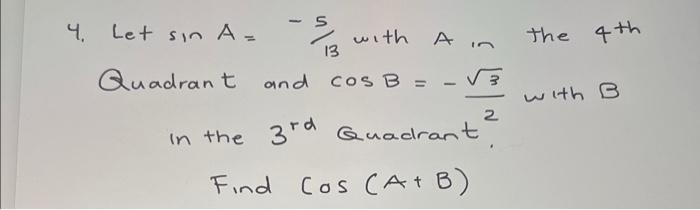 4. Let sin A = -5/13 with A in the 4th
Quadrant and cos B = -√3/2 with B
in the 3rd Quadrant.
Find Cos (A+B)